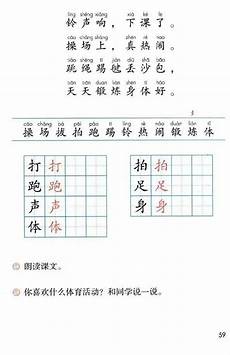 líng shēng xiǎng xià kè le
铃声响，下课了。
cāo chǎng shàng zhēn rè nao
操场上，真热闹。
跳绳踢毽丢沙包，
tiān tiān duàn liàn shēn tǐ hǎo
天天锻炼身体好。
cāo chǎng bá pāi pǎo tī líng rè nao duàn liàn tǐ
操场拔拍跑踢铃热闹锻炼体
打 打 拍 拍
跑 跑 足 足
声 声 身 身
体 体
朗读课文。
你喜欢什么体育活动？和同学说一说。
59